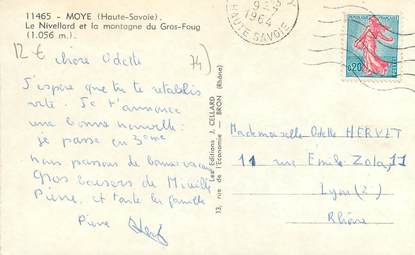 11465 - MOYE (Haute-Savoie).
Le Nivellard et la montagne du Gros-Foug
(1.056 m.).
12 €
74
chère Odette
J'espère que tu te rétablis
vite. Je t'annonce
une bonne nouvelle.
je passe en 3ème
nous passons de bonnes vacances
Gros baisers de Mireille
Pierre, et toute la famille
Pierre
Les Editions J. CELLARD
13, rue de l'Economie — BRON (Rhône)
1964
HAUTE SAVOIE
0,20
Mademoiselle Odette HERVET
11 rue Emile Zola, 11
Lyon (2)
Rhône